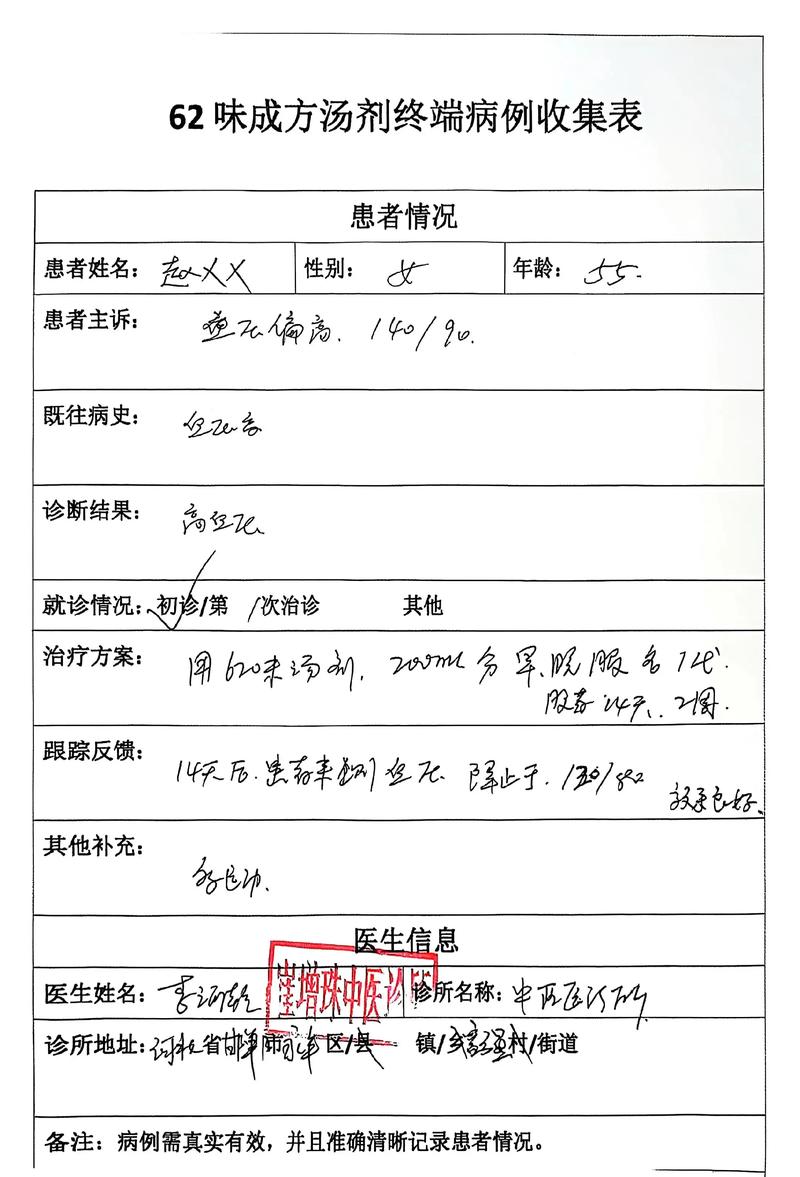 62味成方汤剂终端病例收集表
患者情况
患者姓名：赵XX 性别：女 年龄：55.
患者主诉：血压偏高. 140/90.
既往病史：血压高
诊断结果：高血压
就诊情况：初诊/第 /次治诊 其他
治疗方案：用62味汤剂. 200ml 分早.晚服各1代.
服药14天、2周.
跟踪反馈：14天后.患者来测血压 降止于.
效果良好.
其他补充：
医生信息
医生姓名：李 诊所名称：中医诊所
崔增珠中医诊所
诊所地址：河北省邯郸市 区/县 镇/乡 村/街道
备注：病例需真实有效，并且准确清晰记录患者情况。